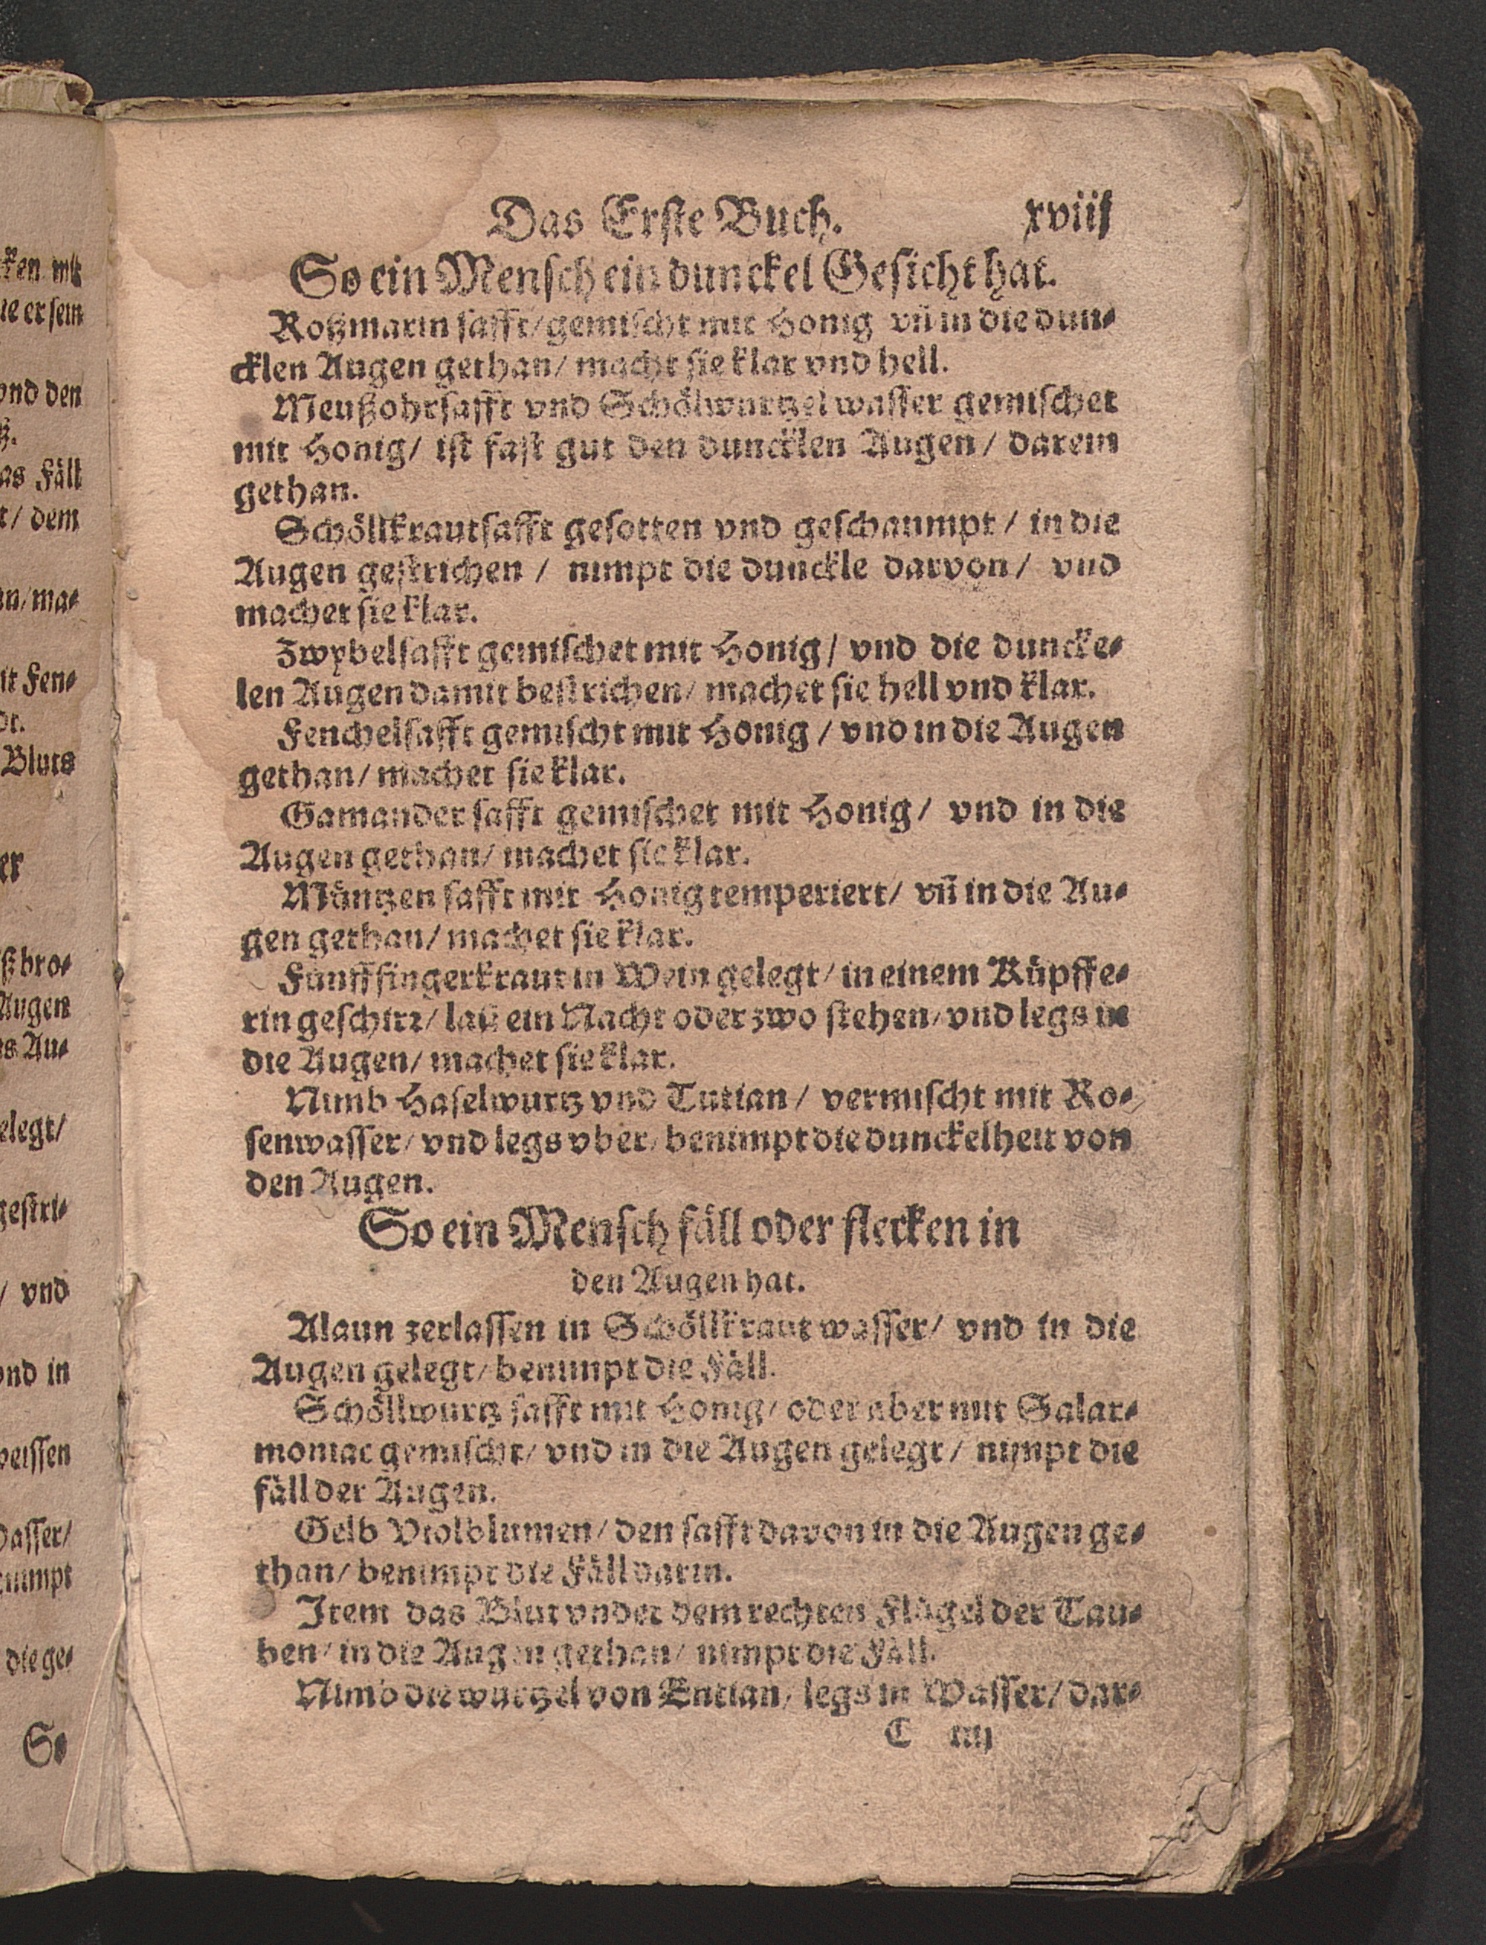 Das Erste Buch. xviij
So ein Mensch ein dunckel Gesicht hat.
Roßmarin safft/gemischt mit Honig vñ in die dun-
cklen Augen gethan/ macht sie klar vnd hell.
Meußohrsafft vnd Schölwurtzel wasser gemischet
mit Honig/ ist fast gut den duncklen Augen/ darein
gethan.
Schöllkrautsafft gesotten vnd geschaumpt/ in die
Augen gestrichen/ nimpt die dunckle darvon/ vnd
machet sie klar.
Zwybelsafft gemischet mit Honig/ vnd die duncke-
len Augen damit bestrichen/ machet sie hell vnd klar.
Fenchelsafft gemischt mit Honig/ vnd in die Augen
gethan/ machet sie klar.
Gamander safft gemischet mit Honig/ vnd in die
Augen gethan/ machet sie klar.
Mäntzen safft mit Honig temperiert/ vñ in die Au-
gen gethan/ machet sie klar.
Fünfffingerkraut in Wein gelegt/ in einem Küpffe-
rin geschirr/ laß ein Nacht oder zwo stehen/ vnd legs in
die Augen/ machet sie klar.
Nimb Haselwurtz vnd Tutian/ vermischt mit Ro-
senwasser/ vnd legs vber/ benimpt die dunckelheit von
den Augen.
So ein Mensch fäll oder flecken in
den Augen hat.
Alaun zerlassen in Schöllkraut wasser/ vnd in die
Augen gelegt/ benimpt die Fäll.
Schöllwurtz safft mit Honig/ oder aber mit Salar-
moniac gemischt/ vnd in die Augen gelegt/ nimpt die
fäll der Augen.
Gelb Violblumen/ den safft davon in die Augen ge-
than/ benimpt die Fäll darin.
Item das Blut vnder dem rechten Flügel der Tau-
ben/ in die Augen gethan/ nimpt die Fäll.
Nimb die wurtzel von Entian/ legs in Wasser/ dar-
C iiij